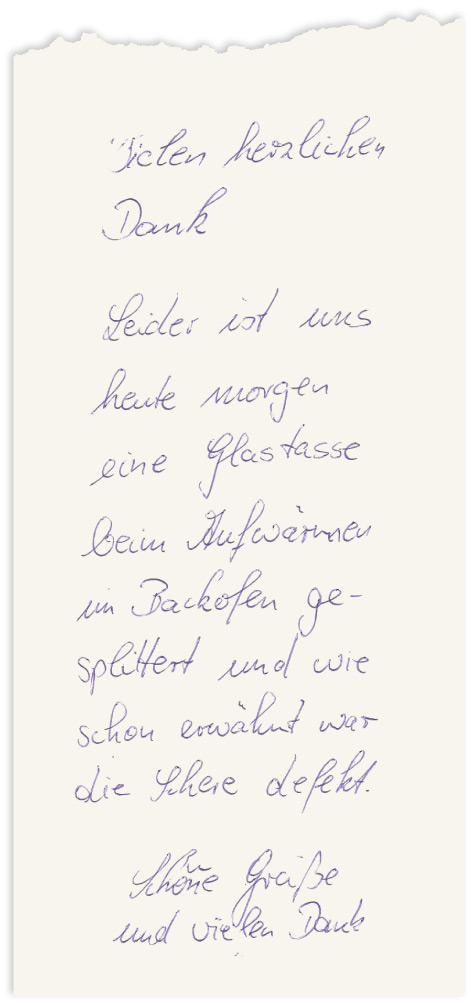 Vielen herzlichen
Dank
Leider ist uns
heute morgen
eine Glastasse
beim Aufwärmen
im Backofen ge-
splittert und wie
schon erwähnt war
die Schere defekt.
Schöne Grüße
und vielen Dank